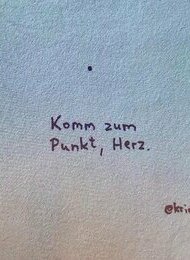 Komm zum
Punkt, Herz.